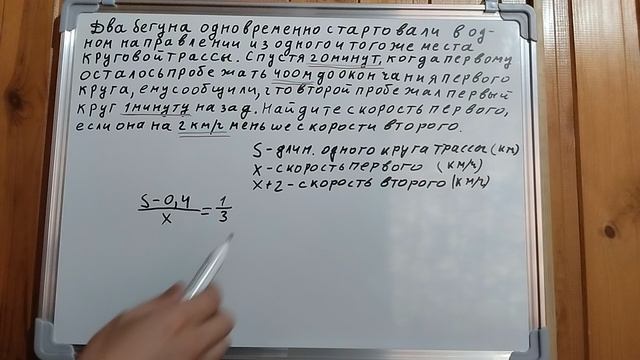 Два бегуна одновременно стартовали в од-
ном направлении из одного и того же места
круговой трассы. Спустя 20 минут, когда первому
осталось пробежать 400 м до окончания первого
круга, ему сообщили, что второй пробежал первый
круг 1 минуту назад. Найдите скорость первого,
если она на 2 км/ч меньше скорости второго.
S - длин. одного круга трассы (км)
x - скорость первого (км/ч)
x+2 - скорость второго (км/ч)
S-0,4 / x = 1/3